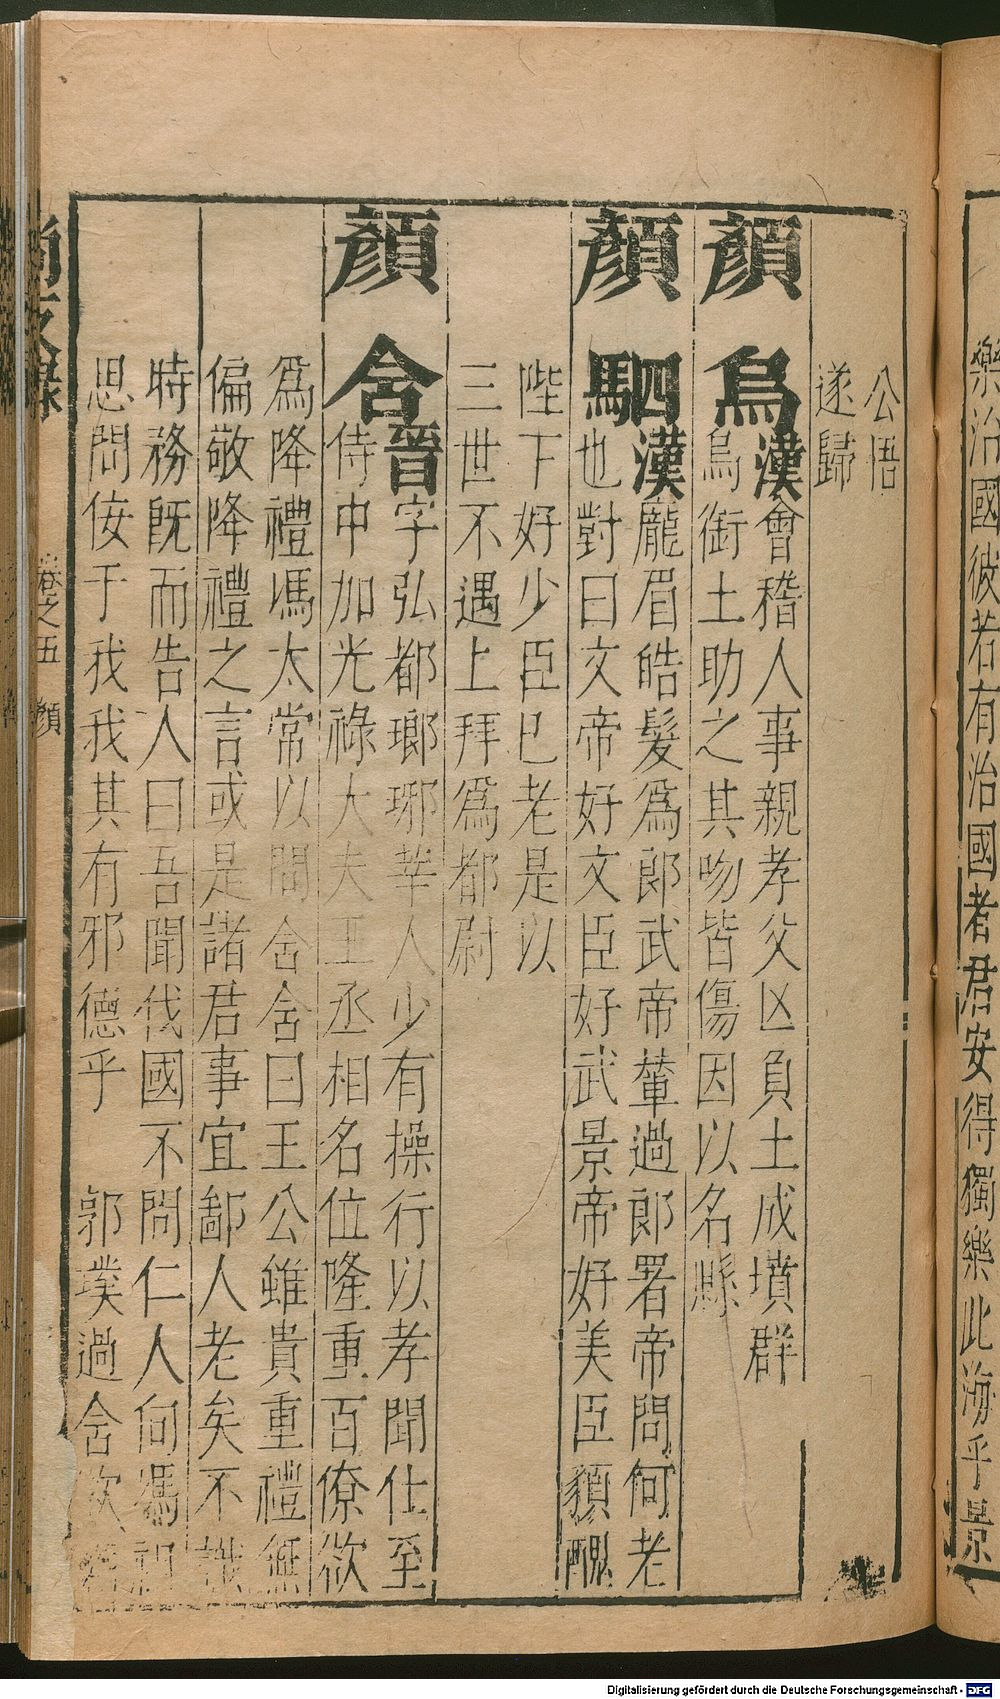 樂治國彼若有治國者君安得獨樂此海乎景
公悟
遂歸
顏烏漢會稽人事親孝父亡負土成墳群
烏銜土助之其吻皆傷因以名縣
顏駟漢龐眉皓髮為郎武帝輦過郎署帝問何老
也對曰文帝好文臣好武景帝好美臣貌醜
陛下好少臣已老是以
三世不遇上拜為都尉
顏含晉字弘都瑯琊莘人少有操行以孝聞仕至
侍中加光祿大夫王丞相名位隆重百僚欲
為降禮馮太常以問含含曰王公雖貴重禮無
偏敬降禮之言或是諸君事宜鄙人老矣不識
時務既而告人曰吾聞伐國不問仁人向馮祖
思問佞于我我其有邪德乎 郭璞過含欲為
尚友錄 卷之五 顏
Digitalisierung gefördert durch die Deutsche Forschungsgemeinschaft - DFG